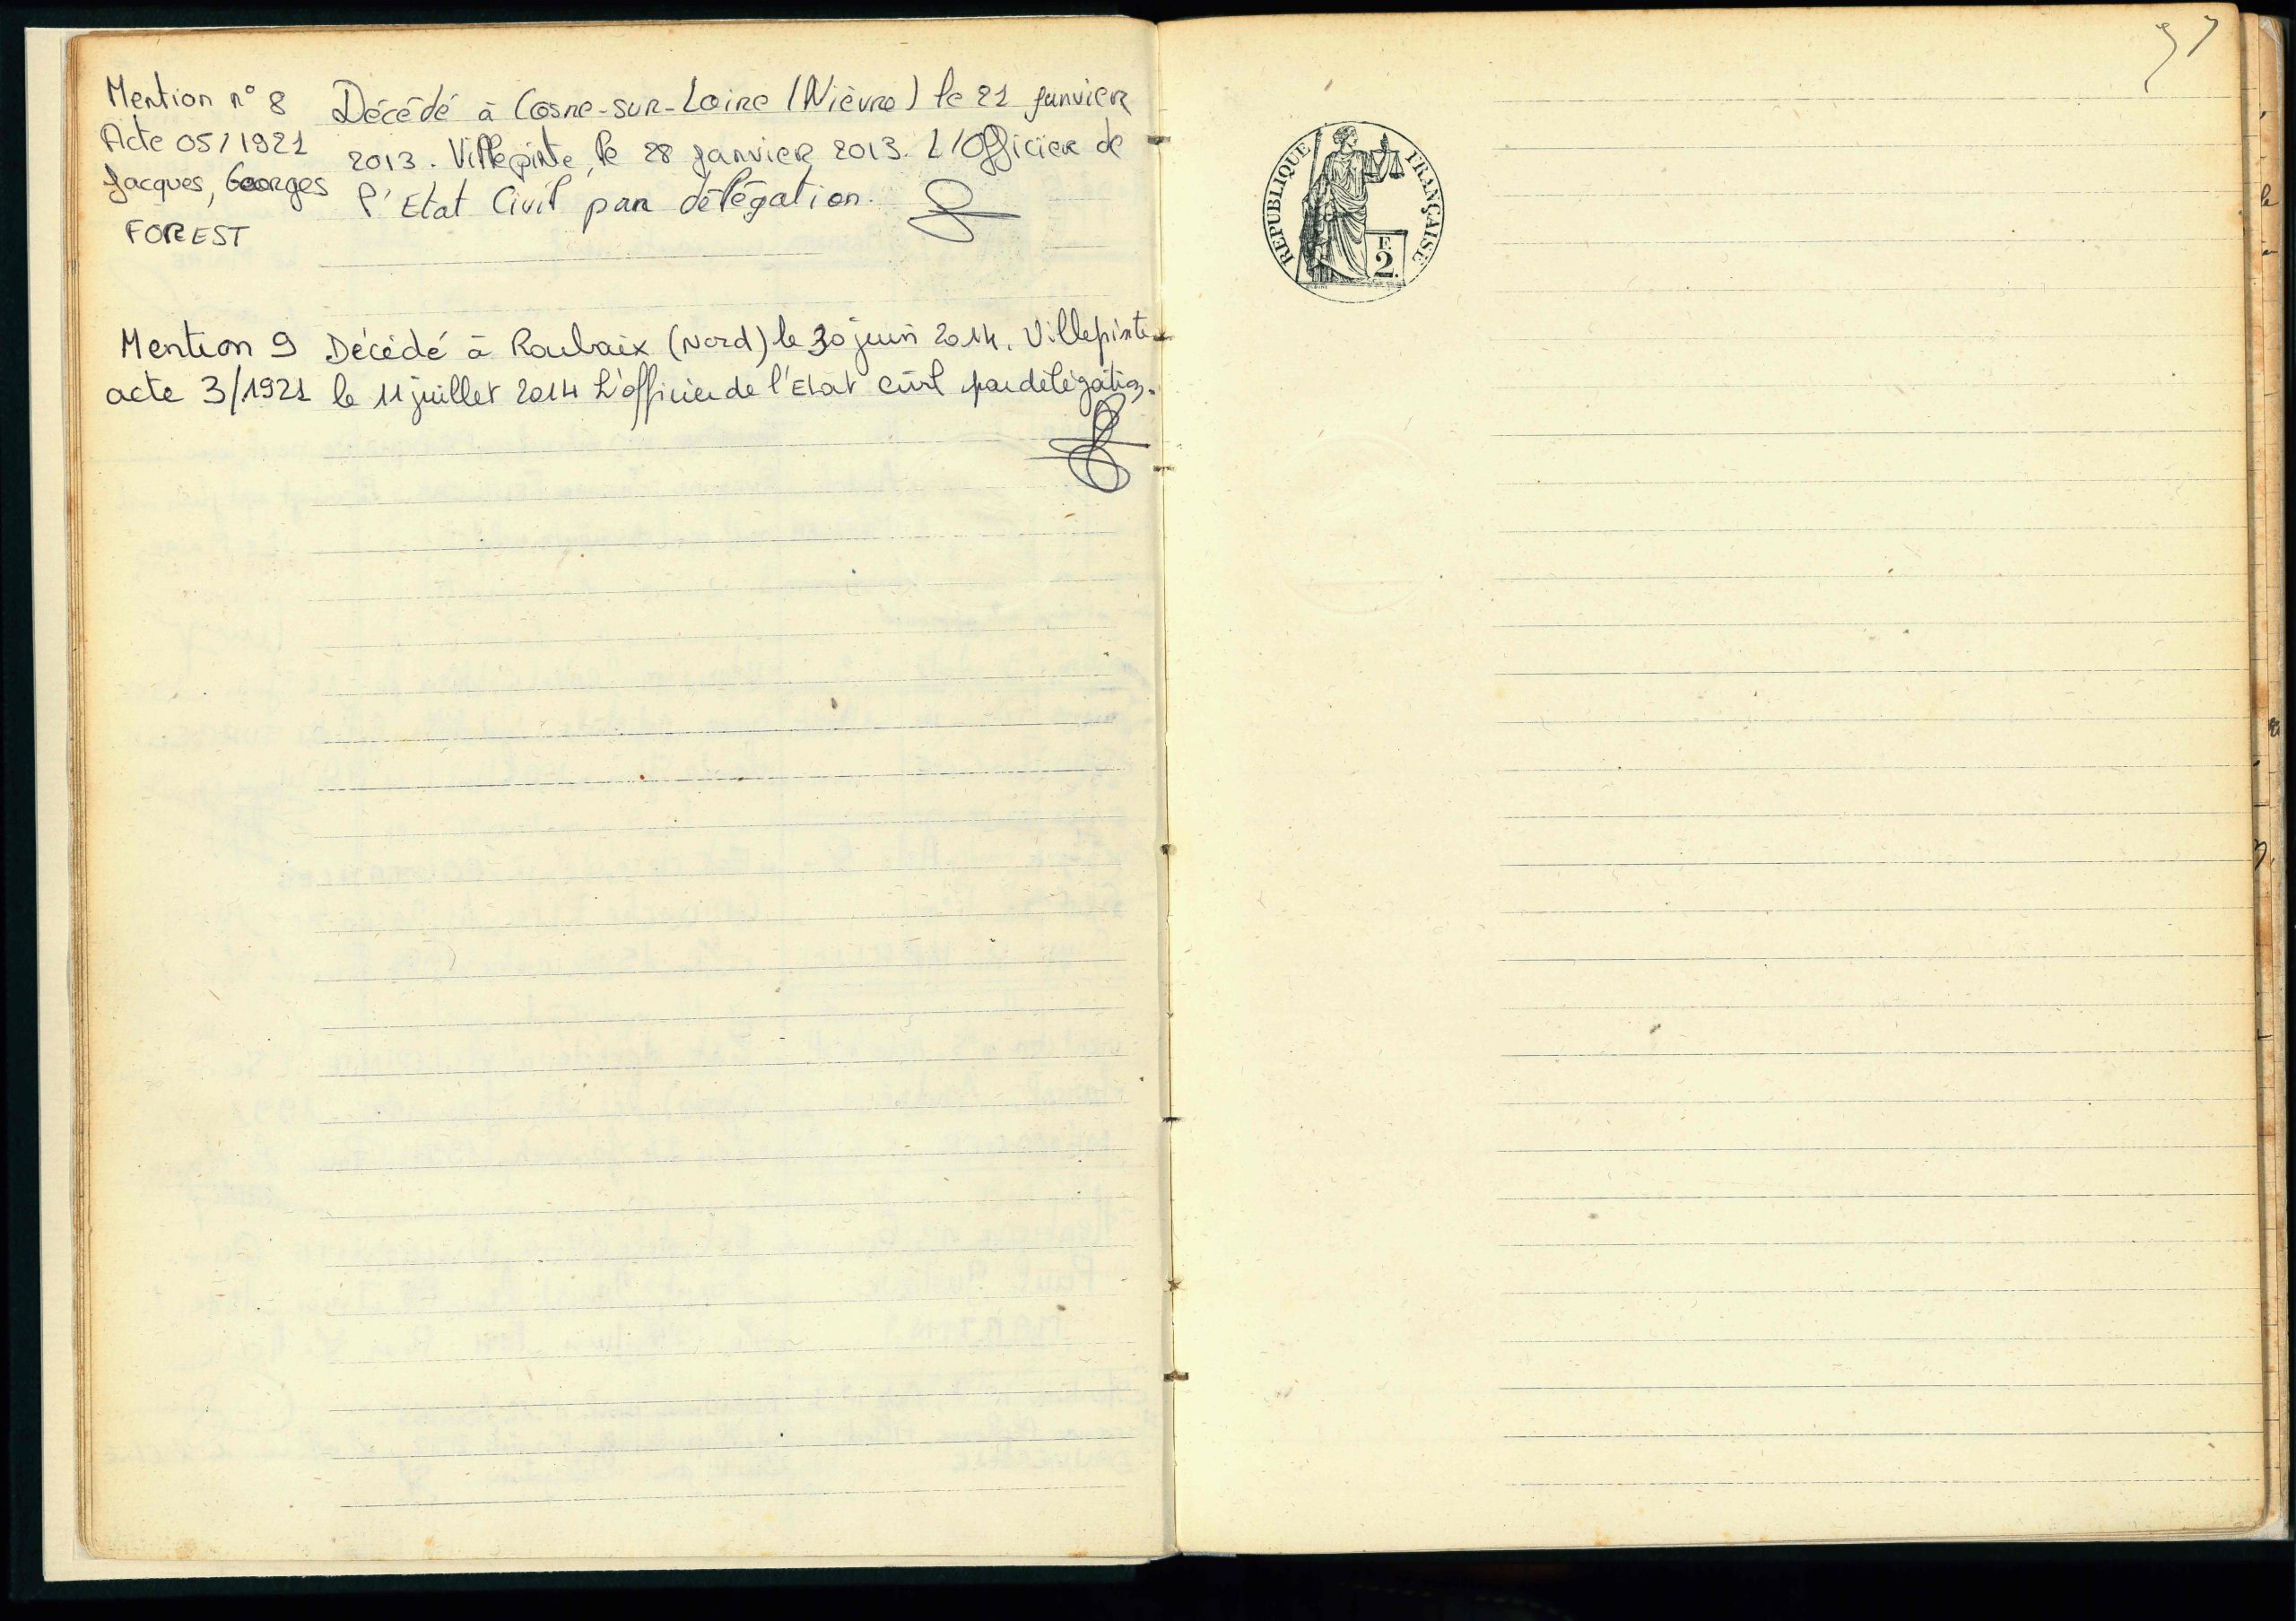 Mention n° 8
Acte 05/1921
Jacques, Georges
FOREST
Décédé à Cosne-sur-Loire (Nièvre) le 21 janvier
2013. Villepinte, le 28 janvier 2013. L'Officier de
l'Etat Civil par délégation.
Mention 9
acte 3/1921
Décédé à Roubaix (Nord) le 30 juin 2014. Villepinte
le 11 juillet 2014 L'officier de l'Etat civil par délégation.
REPUBLIQUE FRANÇAISE
F.
2.